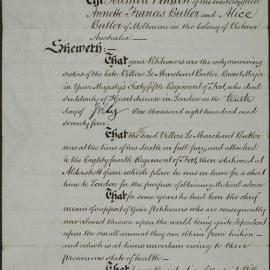 The Humble Petition of the undersigned
Annette Frances Butler and Alice
Butler of Melbourne in the Colony of Victoria
Australia:-
Sheweth:-
That your Petitioners are the only surviving
sisters of the late Villers Le Marchant Butler, Brevet Major
in Your Majesty's Sixty fifth Regiment of Foot, who died
suddenly of Heart disease in London on the tenth
day of July One thousand eight hundred and
seventy four.
That the said Villers Le Marchant Butler
was at the time of his death on full pay, and attached
to the Eighty fourth Regiment of Foot, then stationed at
Aldershott from which place he was on leave for a short
time to London for the purpose of obtaining Medical advice
That for some years he had been the chief
means of support of Your Petitioners who are consequently
now almost thrown upon the world being quite dependent
upon the small amount they can obtain from tuition -
and which is at times uncertain owing to their
precarious state of health -
That